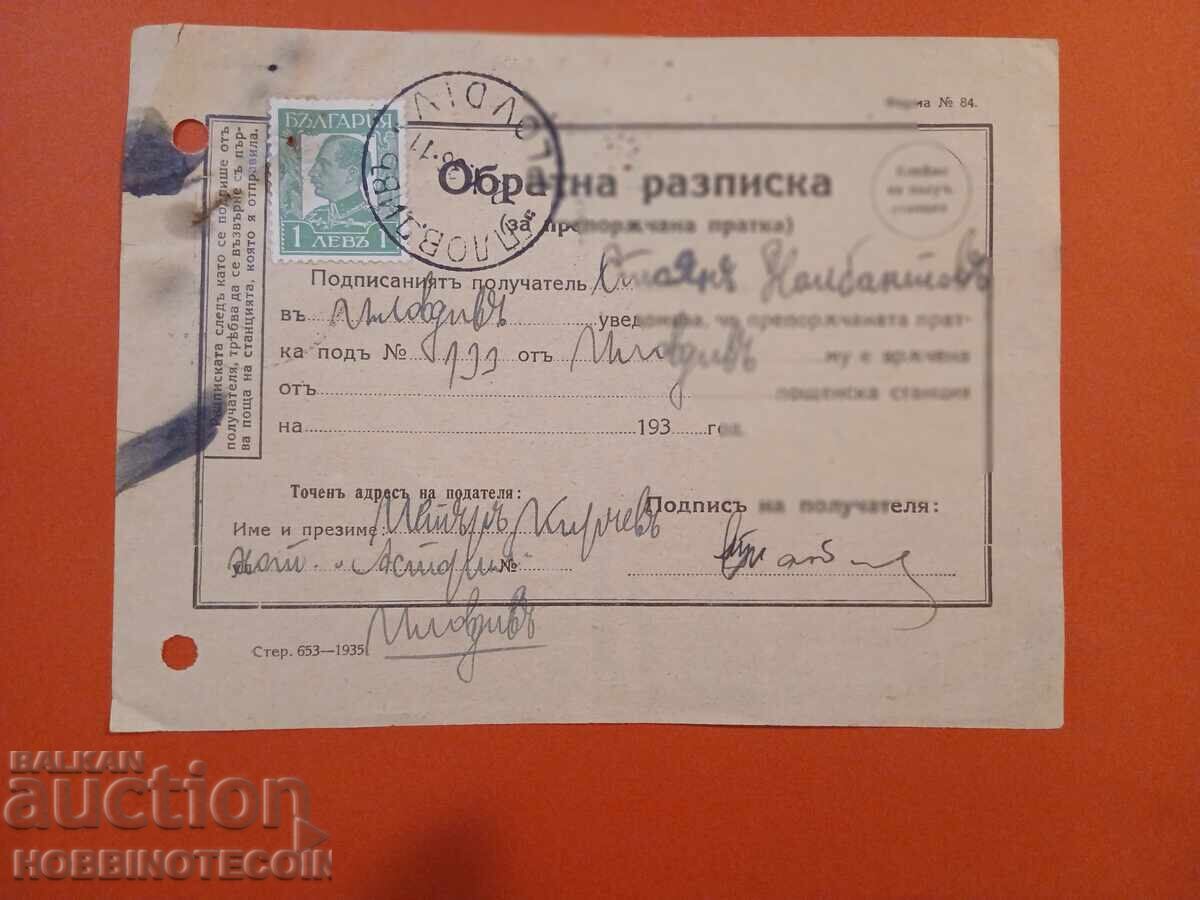 Форма № 84.
БЪЛГАРИЯ
1 ЛЕВЪ 1
ПЛОВДИВЪ
PLOVDIV
Обратна разписка
(за препоржчана пратка)
Клеймо
на получ.
станция
Разписката следъ като се подпише отъ
получателя, трѣбва да се възвърне съ пър-
ва поща на станцията, която я отправила.
Подписаниятъ получател Стоянъ Налбантовъ
въ Пловдивъ уведомява, че препоржчаната прат-
ка подъ № 199 отъ Пловдивъ му е врачена
отъ пощенска станция
на 193 год.
Точенъ адресъ на подателя:
Подписъ на получателя:
Име и презиме: Петъръ Кирчевъ
хот. „Астория“ №
Пловдивъ
Стер. 653—1935
BALKAN
auction
HOBBINOTECOIN